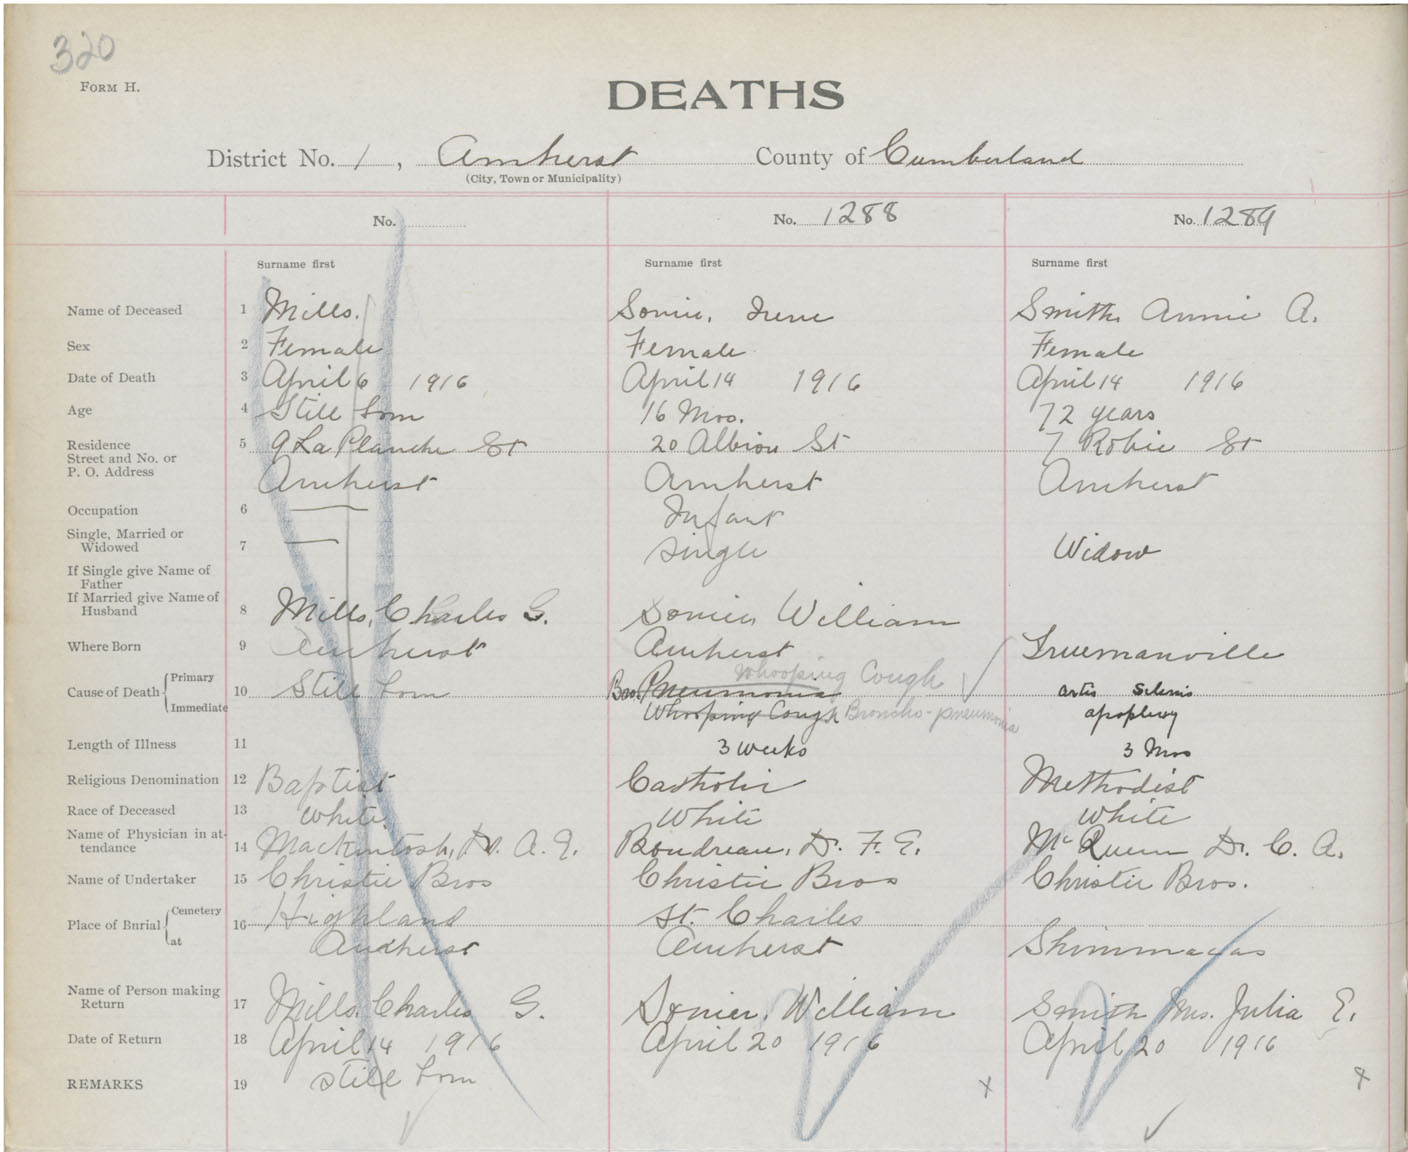 320
FORM H.
DEATHS
District No. 1, Amherst County of Cumberland
(City, Town or Municipality)
No. No. 1288 No. 1289
Surname first Surname first Surname first
Name of Deceased 1 Mills. Somier, Irene Smith, Annie A.
Sex 2 Female Female Female
Date of Death 3 April 6 1916 April 14 1916 April 14 1916
Age 4 Still born 16 Mos. 72 years
Residence 5 9 La Planche St 20 Albion St 7 Robie St
Street and No. or
P. O. Address Amherst Amherst Amherst
Occupation 6 — Infant
Single, Married or
Widowed 7 — Single Widow
If Single give Name of
Father
If Married give Name of
Husband 8 Mills, Charles G. Somier, William
Where Born 9 Amherst Amherst Truemanville
Whooping Cough
Cause of Death Primary 10 Still born Bro. Pneumonia artio Sclerois
Immediate Whooping Cough Broncho-pneumonia apoplexy
Length of Illness 11 3 weeks 3 Mos
Religious Denomination 12 Baptist Catholic Methodist
Race of Deceased 13 White White White
Name of Physician in at-
tendance 14 Mackintosh, Dr. A. E. Boudreau, Dr. F. E. McQueen Dr. C. A.
Name of Undertaker 15 Christie Bros Christie Bros Christie Bros.
Place of Burial Cemetery 16 Highland St. Charles
at Amherst Amherst
Name of Person making
Return 17 Mills, Charles G. Somier, William Smith Mrs. Julia E.
Date of Return 18 April 14 1916 April 20 1916 April 20 1916
REMARKS 19 Still born x x